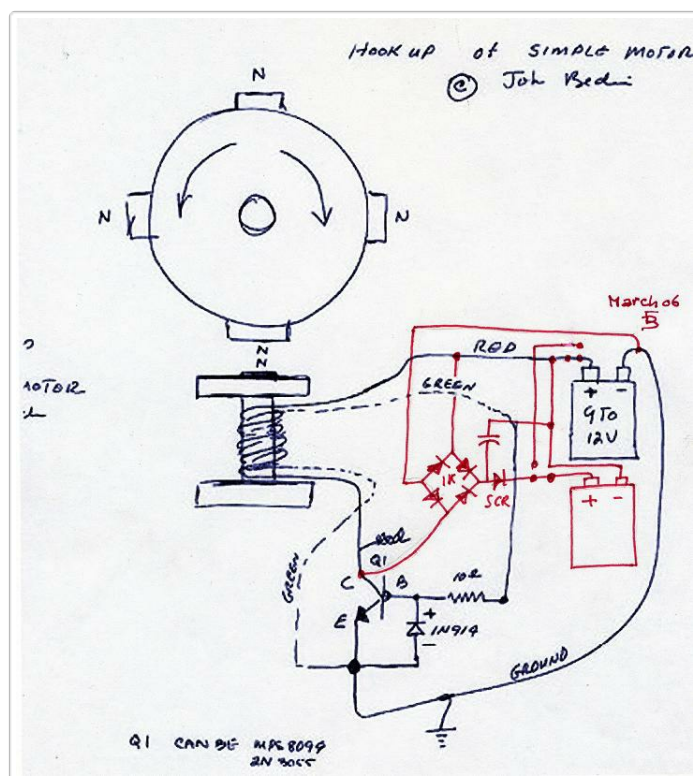 HOOK UP of SIMPLE MOTOR
© John Bedini
N
N
N
N
March 06
MOTOR
RED
GREEN
+ -
9 TO
12V
1K
SCR
+ -
Red
Q1
C
B
10Ω
E
+
1N914
-
GREEN
GROUND
Q1 CAN BE MPS8099
2N3055